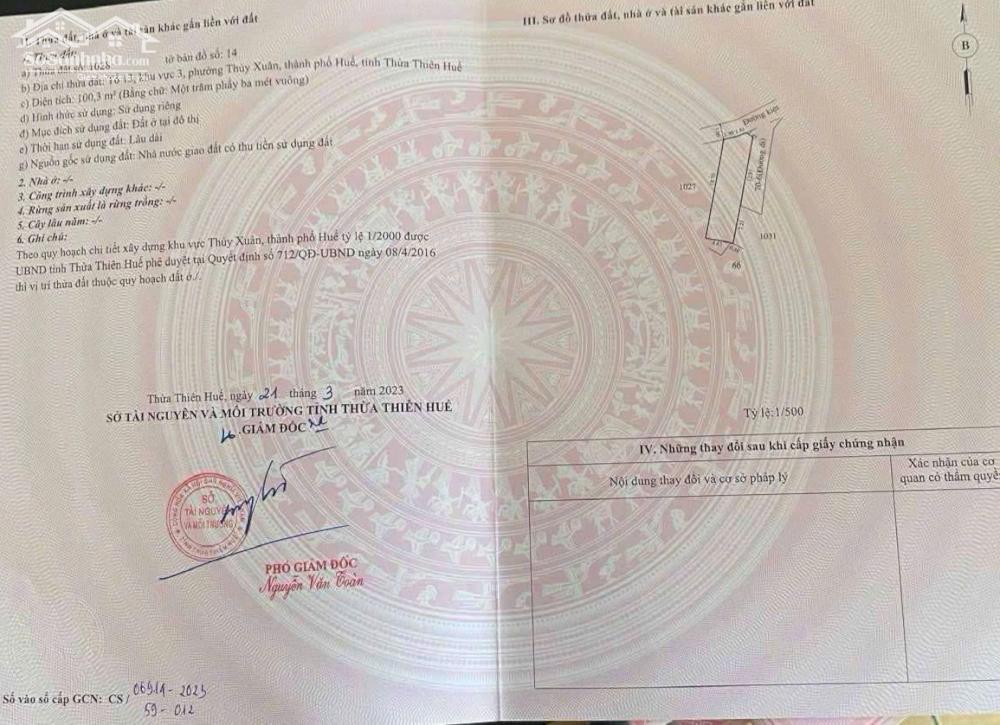 II. Thửa đất, nhà ở và tài sản khác gắn liền với đất
1. Thửa đất:
a) Thửa đất số: 1028 tờ bản đồ số: 14
b) Địa chỉ thửa đất: Tổ 13, khu vực 3, phường Thủy Xuân, thành phố Huế, tỉnh Thừa Thiên Huế
c) Diện tích: 100,3 m² (Bằng chữ: Một trăm phẩy ba mét vuông)
d) Hình thức sử dụng: Sử dụng riêng
đ) Mục đích sử dụng: Đất ở tại đô thị
e) Thời hạn sử dụng đất: Lâu dài
g) Nguồn gốc sử dụng đất: Nhà nước giao đất có thu tiền sử dụng đất
2. Nhà ở: -/-
3. Công trình xây dựng khác: -/-
4. Rừng sản xuất là rừng trồng: -/-
5. Cây lâu năm: -/-
6. Ghi chú:
Theo quy hoạch chi tiết xây dựng khu vực Thủy Xuân, thành phố Huế tỷ lệ 1/2000 được
UBND tỉnh Thừa Thiên Huế phê duyệt tại Quyết định số 712/QĐ-UBND ngày 08/4/2016
thì vị trí thửa đất thuộc quy hoạch đất ở./.
Thừa Thiên Huế, ngày 21 tháng 3 năm 2023
SỞ TÀI NGUYÊN VÀ MÔI TRƯỜNG TỈNH THỪA THIÊN HUẾ
GIÁM ĐỐC
SỞ
TÀI NGUYÊN
VÀ MÔI TRƯỜNG
TỈNH THỪA THIÊN HUẾ
PHÓ GIÁM ĐỐC
Nguyễn Văn Toàn
Số vào sổ cấp GCN: CS/ 06914 - 2023
59 - 012
III. Sơ đồ thửa đất, nhà ở và tài sản khác gắn liền với đất
B
Đường kiệt
1027
1031
66
Tỷ lệ: 1/500
IV. Những thay đổi sau khi cấp giấy chứng nhận
Nội dung thay đổi và cơ sở pháp lý
Xác nhận của cơ
quan có thẩm quyề
Sosanhnha.com